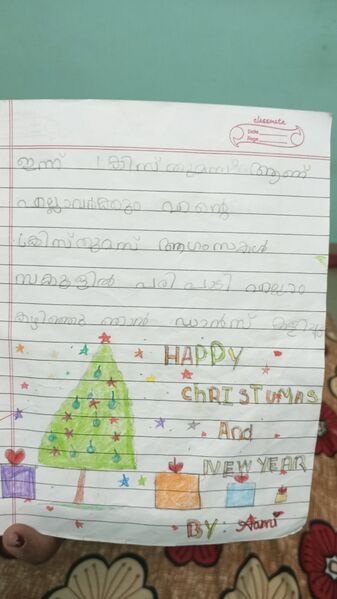 classmate
Date
Page
ഇന്ന് ക്രിസ്തുമസ് ആണ്
എല്ലാവർക്കും എന്റെ
ക്രിസ്തുമസ് ആശംസകൾ
സ്കൂളിൽ പരിപാടി എല്ലാം
കഴിഞ്ഞു ഞാൻ ഡാൻസ് കളിച്ചു
HAPPY
ChRISTUMAS
And
NEW YEAR
BY : Aami